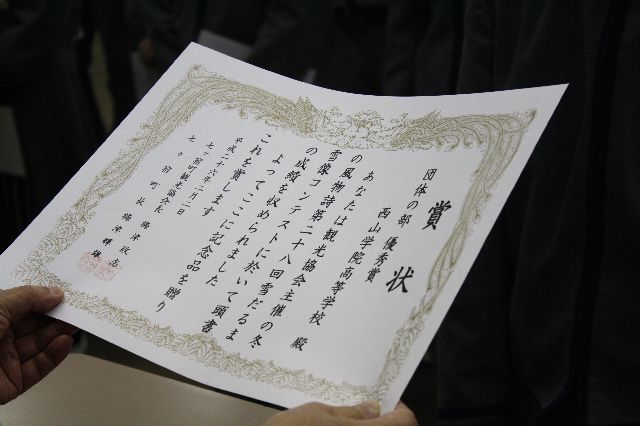 賞状
団体の部 優秀賞
西山学院高等学校 殿
あなたは観光協会主催の冬
の風物詩第二十八回雪だるま
雪像コンテストに於いて頭書
の成績を収められました
よってここに記念品を贈り
これを賞します
平成二十六年二月二日
七ヶ宿町観光協会長
七ヶ宿町長